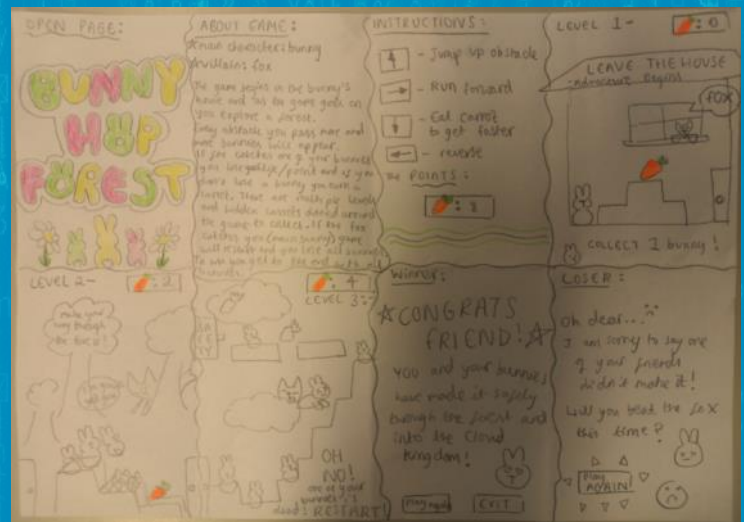 OPEN PAGE:
BUNNY
HOP
FOREST
ABOUT GAME:
main character: bunny
villain: fox
The game begins in the bunny's
house and as the game goes on
you explore a forest.
Every obstacle you pass more and
more bunnies will appear.
If fox catches one of your bunnies
you lose a life/point and if you
don't lose a bunny you earn a
carrot. There are multiple levels
and hidden carrots dotted around
the game to collect. If the fox
catches you (main bunny) game
will restart and you lose all bunnies.
To win you get to the end with all
bunnies.
INSTRUCTIONS:
- Jump up obstacle
- Run forward
- Eat carrot
to get faster
- reverse
the POINTS:
: 1
LEVEL 1-
: 0
LEAVE THE HOUSE
-adventure begins
FOX
COLLECT 1 bunny!
LEVEL 2-
: 2
make your
way through
the forest!
: 4
LEVEL 3:
OH
NO!
one of your
bunnies is
dead! RESTART!
Winner:
CONGRATS
FRIEND!
YOU and your bunnies
have made it safely
through the forest and
into the Cloud
Kingdom!
Play again
EXIT
LOSER:
Oh dear...
I am sorry to say one
of your friends
didn't make it!
Will you beat the fox
this time?
Play
AGAIN!